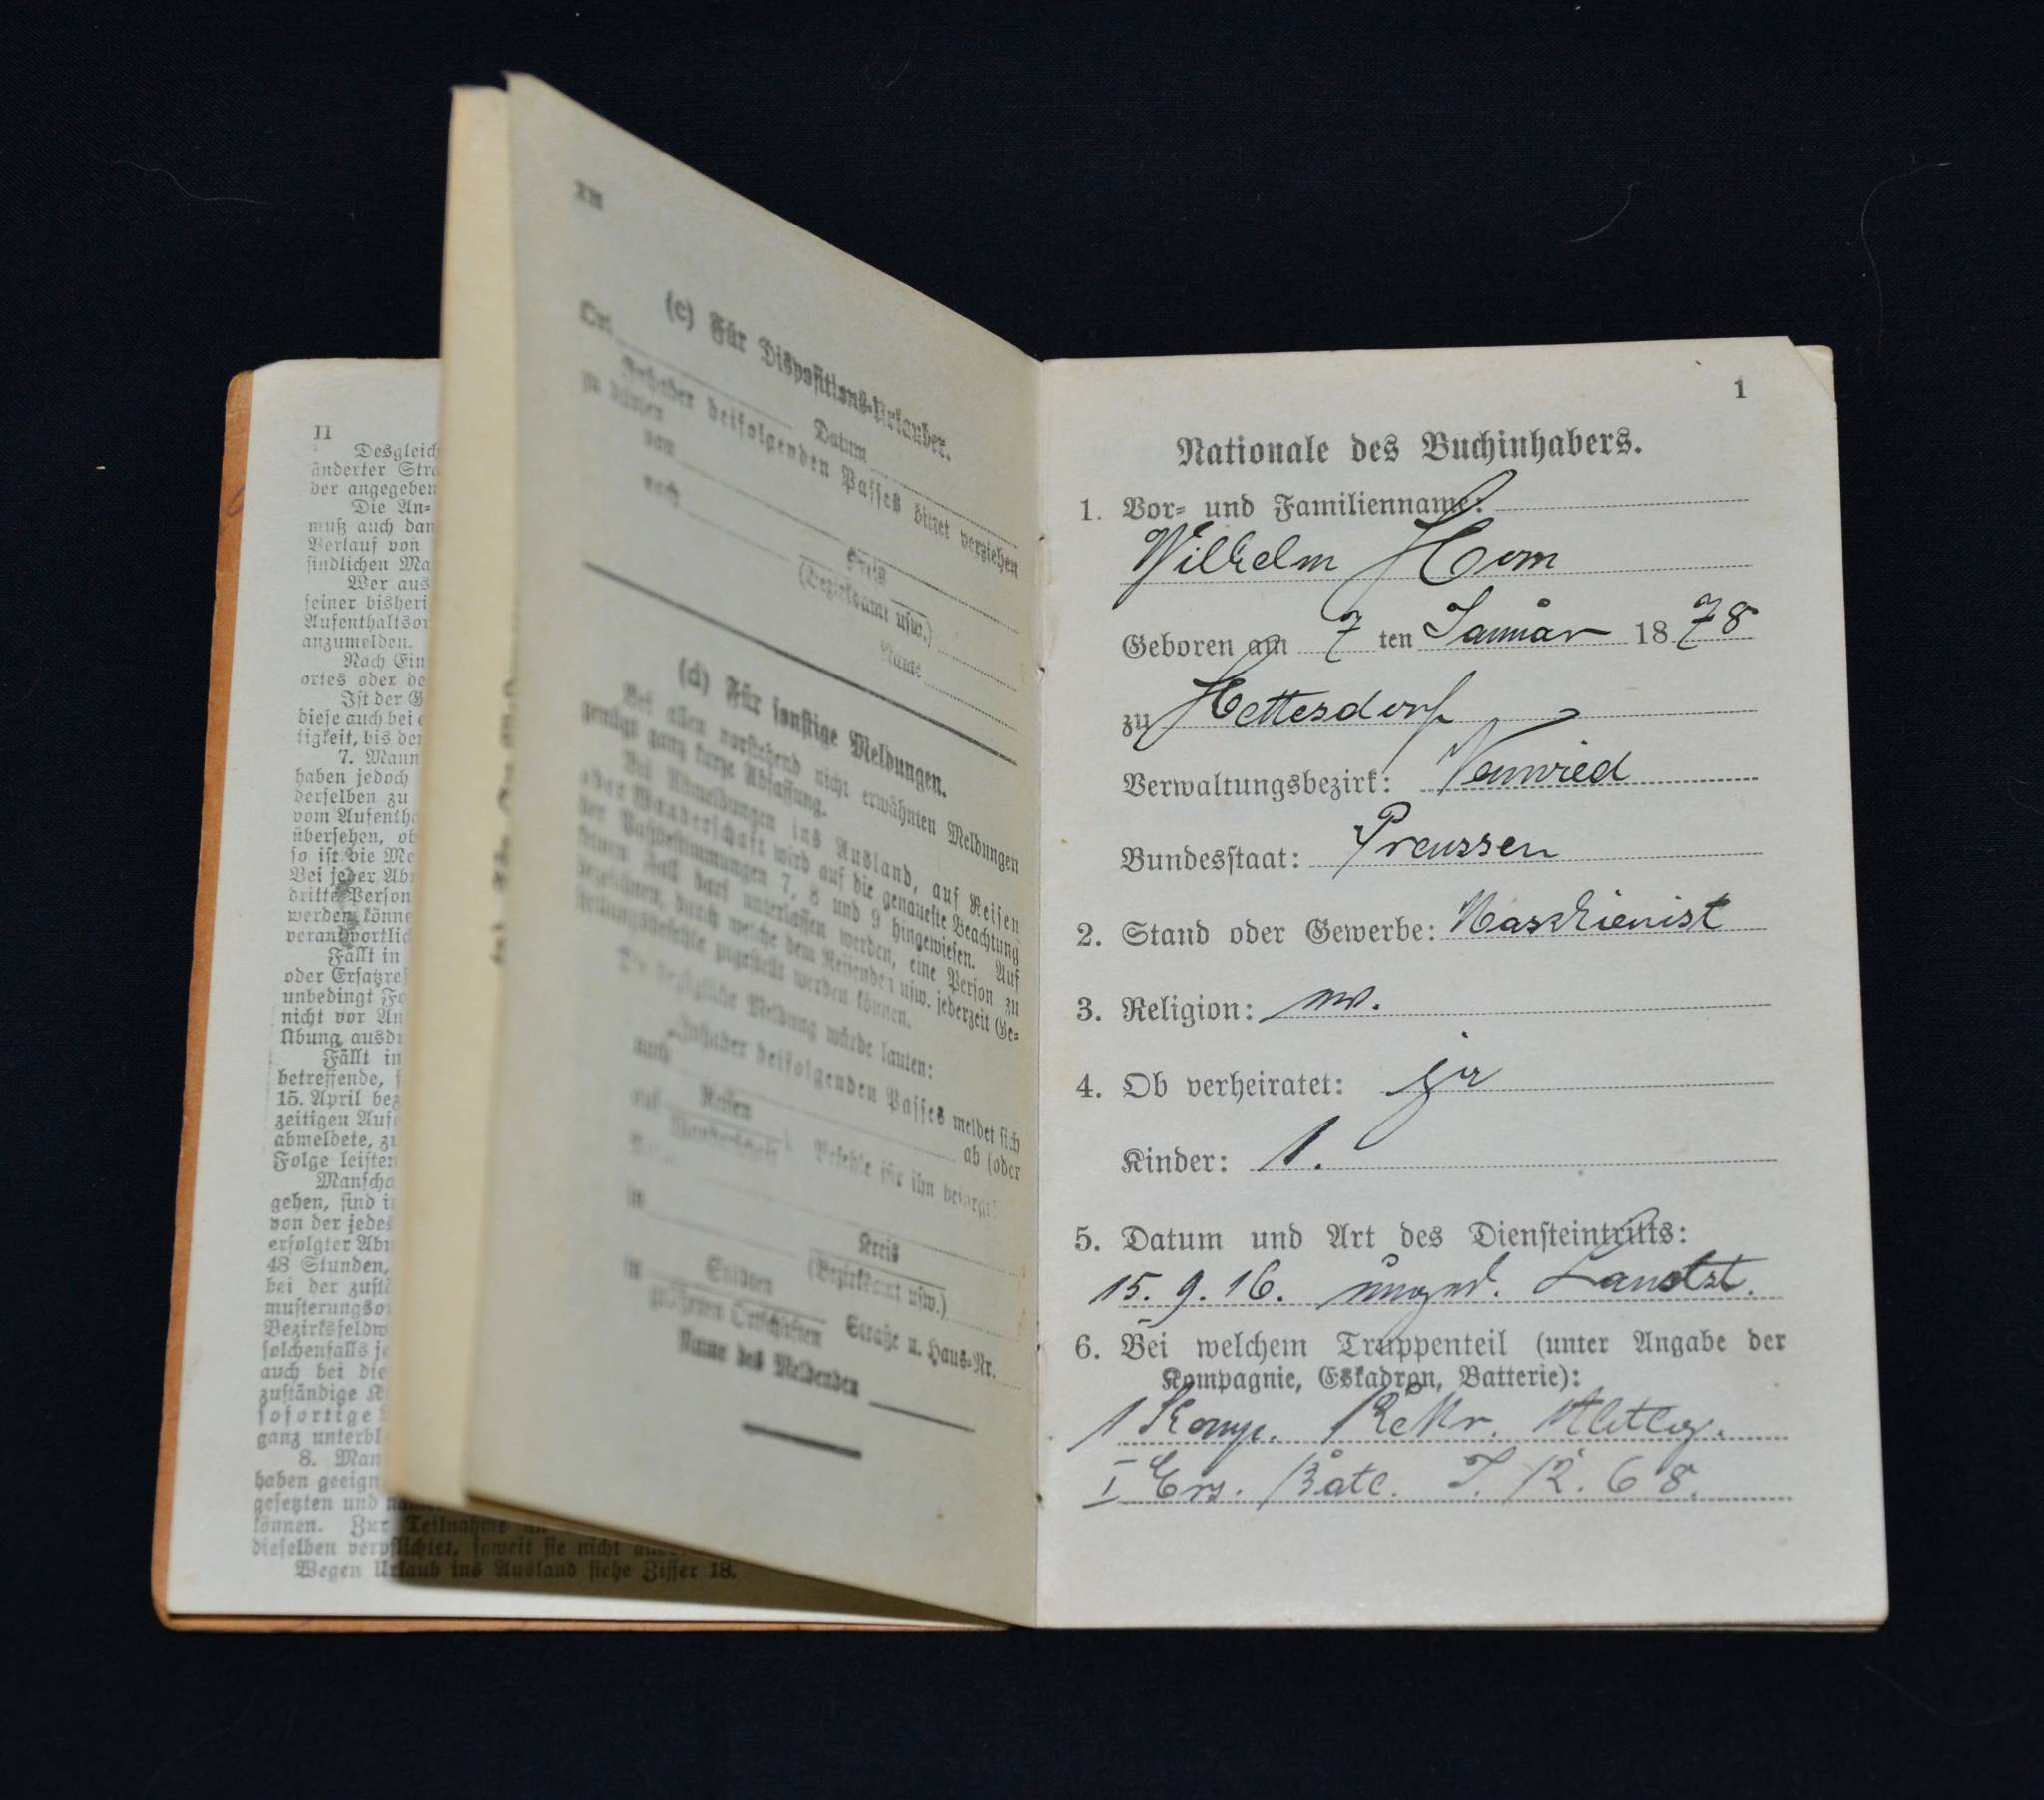 II
Desgleich
änderter Stra
der angegeben
Die An-
muß auch dan
Verlauf von
findlichen Ma
Wer aus
seiner bisheri
Aufenthaltsor
anzumelden.
Nach Ein
ortes oder de
Ist der G
diese auch bei e
tigkeit, bis der
7. Mann
haben jedoch
derselben zu
vom Aufentha
übersehen, ob
so ist die Me
Bei jeder Abr
dritte Person
werden könne
verantwortlic
Fällt in
oder Ersatzres
unbedingt Fo
nicht vor An
Übung ausdr
Fällt in
betreffende,
15. April bez
zeitigen Aufe
abmeldete, zu
Folge leisten
Manscha
gehen, sind i
von der jedes
erfolgter Abn
48 Stunden,
bei der zustä
musterungsor
Bezirksfeldw
solchenfalls je
auch bei die
zuständige K
sofortige
ganz unterbl
8. Man
haben geeign
gesetzten und
können. Zur Teilnahme an
dieselben verpflichtet, soweit sie nicht
Wegen Urlaub ins Ausland siehe Ziffer 18.
XII
(c) Für Dispositions-Urlauber.
Ort Datum
Inhaber beifolgenden Passes bittet verziehen
zu dürfen
von
nach Kreis
(Bezirksamt usw.)
Name
(d) Für sonstige Meldungen.
Bei allen vorstehend nicht erwähnten Meldungen
genügt ganz kurze Abfassung.
Bei Abmeldungen ins Ausland, auf Reisen
oder Wanderschaft wird auf die genaueste Beachtung
der Paßbestimmungen 7, 8 und 9 hingewiesen. Auf
keinen Fall darf unterlassen werden, eine Person zu
bezeichnen, durch welche dem Reisenden usw. jederzeit Ge-
stellungsbefehle zugestellt werden können.
Die bezügliche Meldung würde lauten:
Inhaber beifolgenden Passes meldet sich
nach ab (oder
auf Reisen
Wanderschaft). Befehle für ihn
in Kreis
(Bezirksamt usw.)
in Städten
größeren Ortschaften Straße u. Haus-Nr.
Name des Meldenden
1
Nationale des Buchinhabers.
1. Vor- und Familienname:
Wilhelm Horn
Geboren am 7 ten Januar 1878
zu Hettesdorf
Verwaltungsbezirk: Neuwied
Bundesstaat: Preussen
2. Stand oder Gewerbe: Maschienist
3. Religion: ev.
4. Ob verheiratet: ja
Kinder: 1.
5. Datum und Art des Diensteintritts:
15. 9. 16. unged. Landst.
6. Bei welchem Truppenteil (unter Angabe der
Kompagnie, Eskadron, Batterie):
1 Komp. Rekr.
I Ers. Batl. J. R. 68.